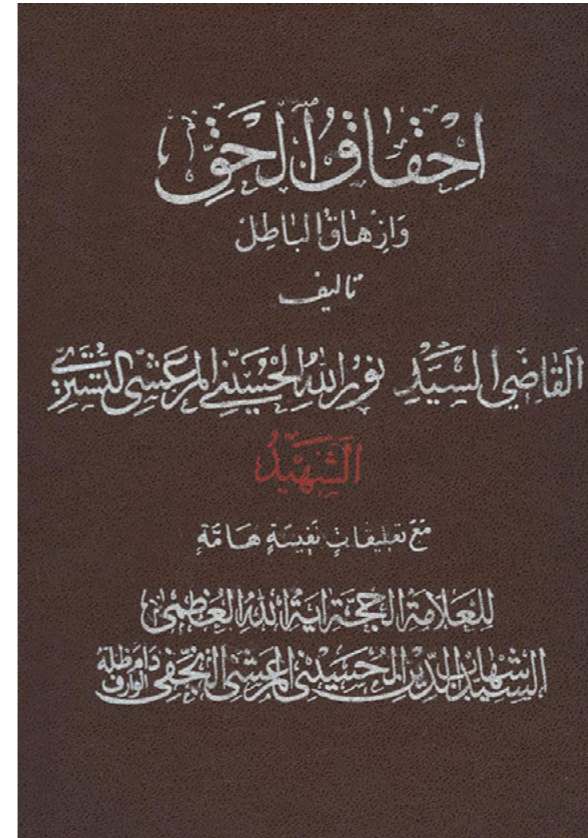 احْقَاقُ الْحَقِّ
وَازْهَاقُ الْبَاطِل
تأليف
القَاضِي السَّيِّدِ نُورُ اللهِ الحُسَيْنِي المَرعَشي التُّستَرِي
الشَّهِيدُ
مَعَ تَعلِيقَاتٍ نَفِيسَةٍ هَامَّةٍ
للعَلَّامَةِ الحُجَّةِ آيَةِ اللهِ العُظمى
السيد شهاب الدين الحسيني المرعشي النجفي دام ظله الوارف